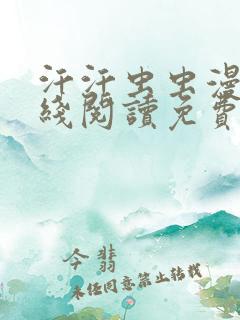 汗汗虫虫漫
綫閱讀免費
今翡
未经同意禁止转载